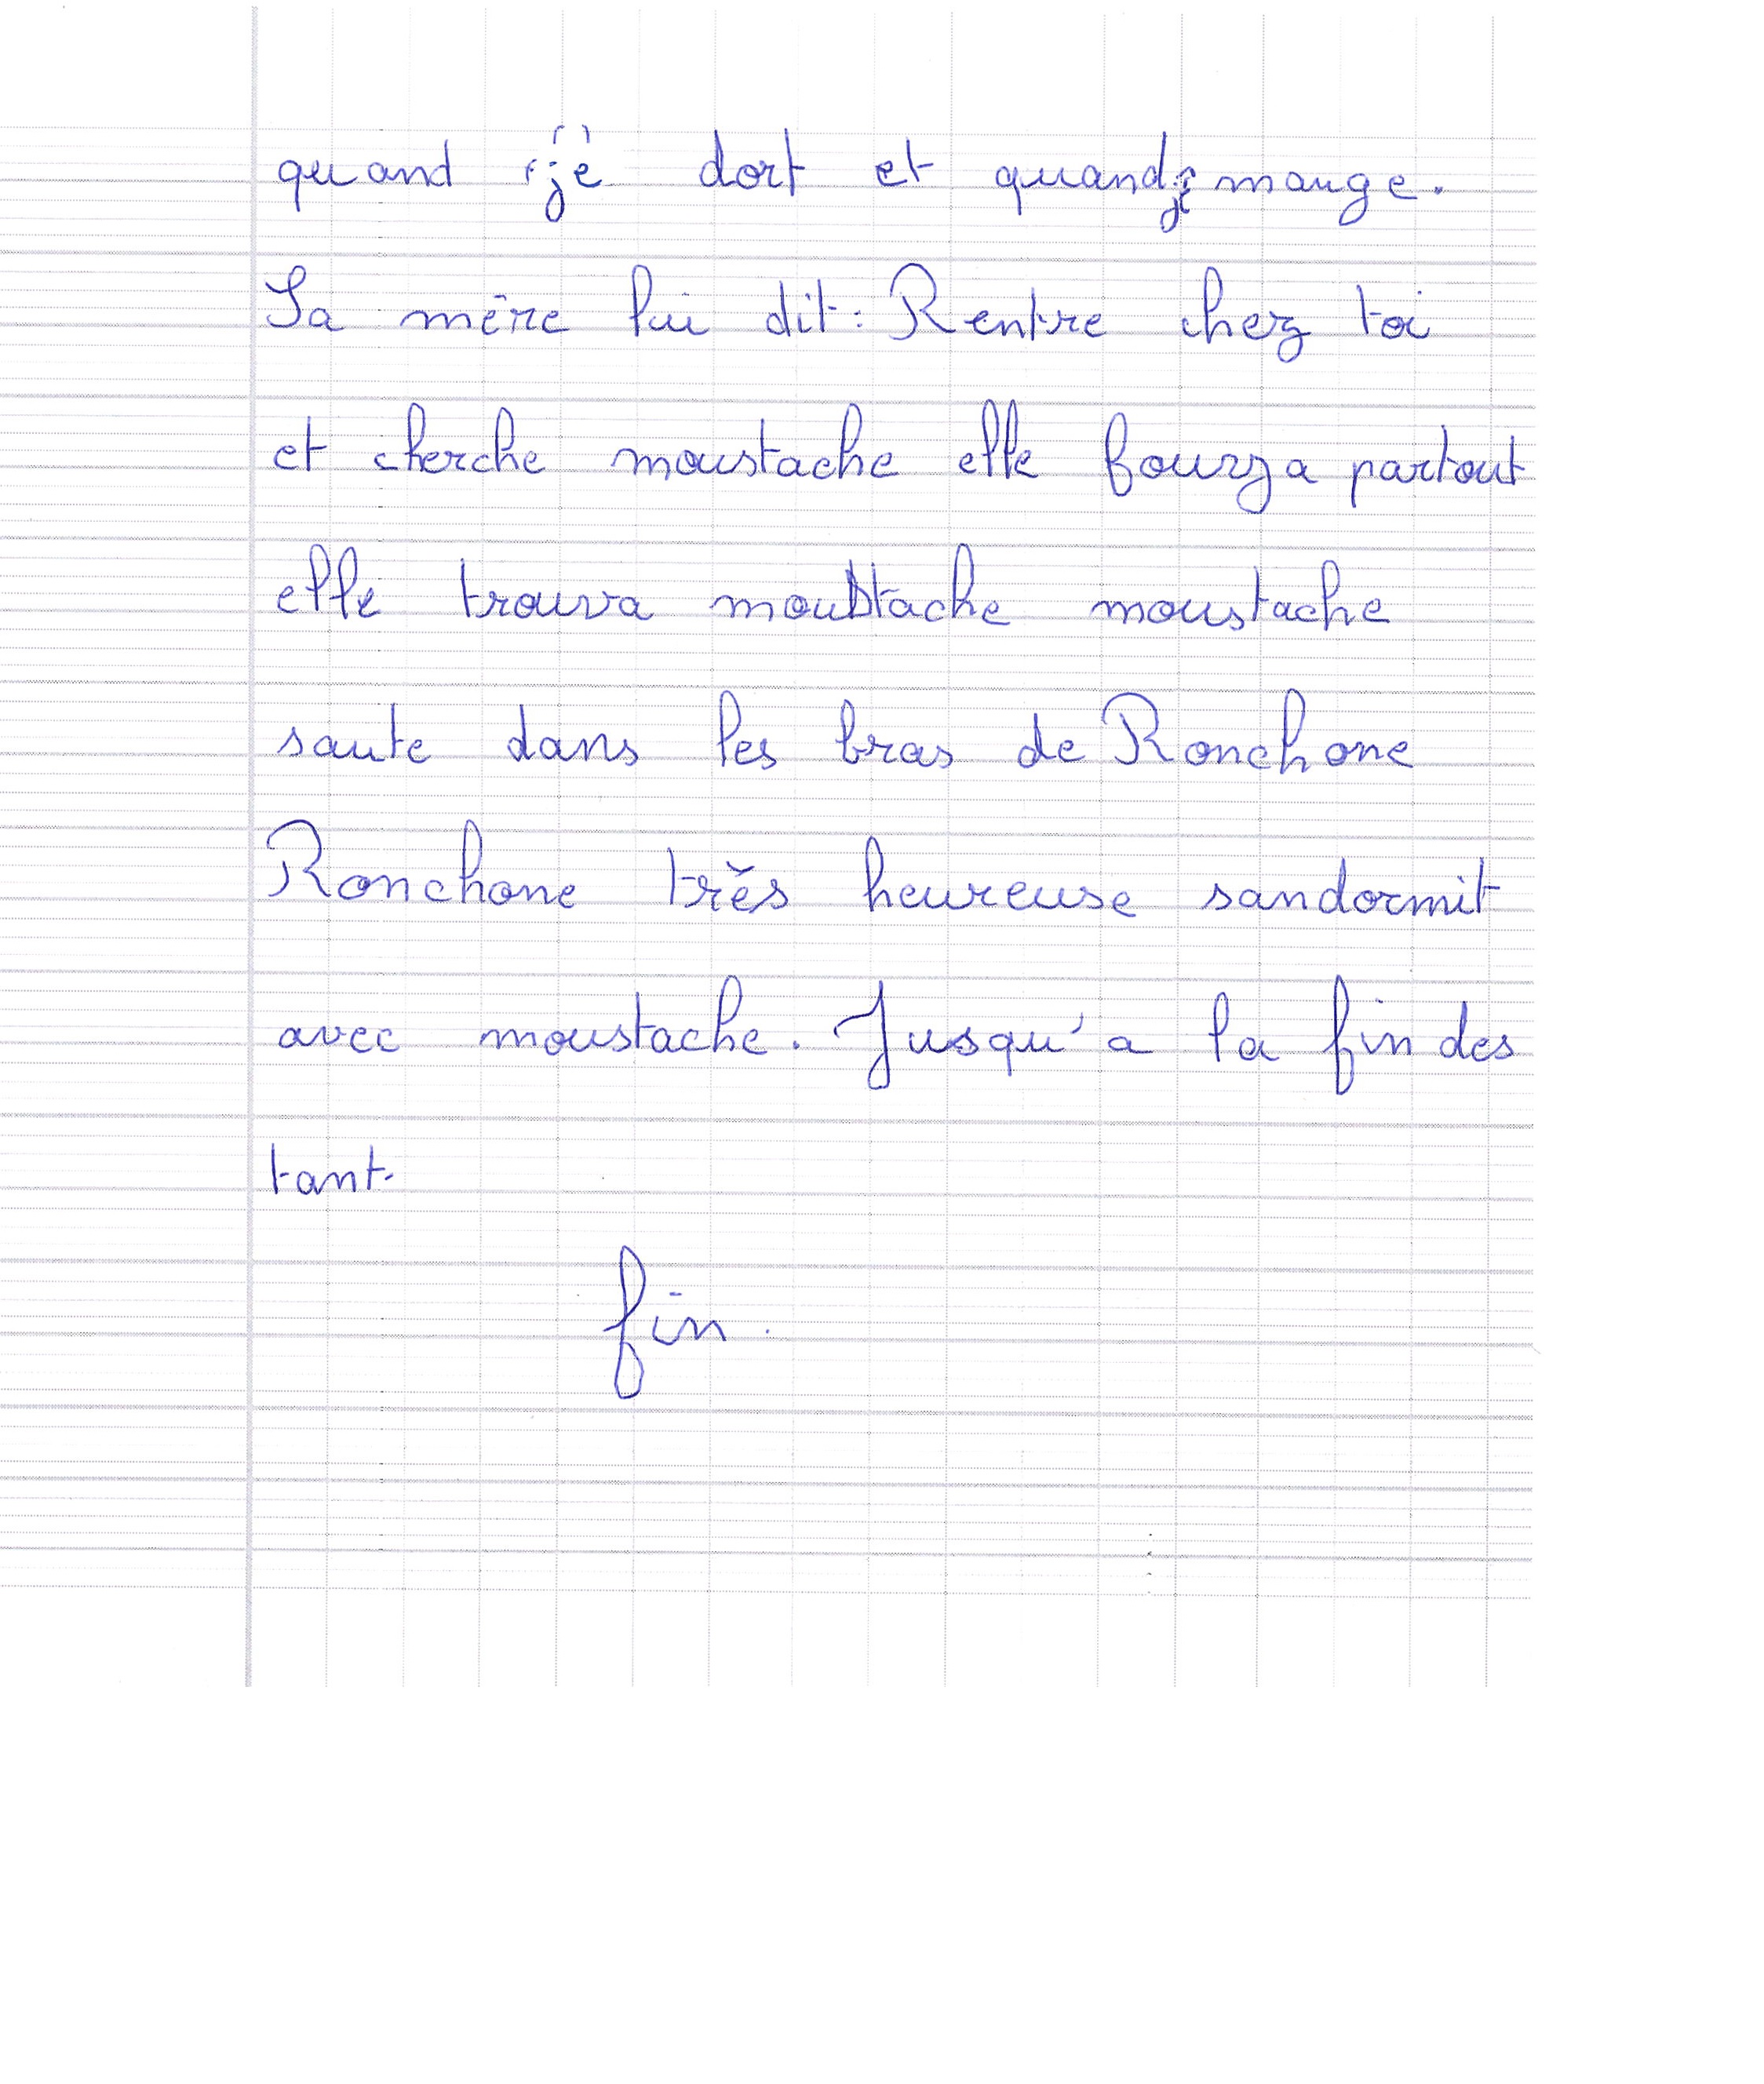 quand je dort et quand je mange.
Sa mère lui dit: Rentre chez toi
et cherche moustache elle fouya partout
elle trouva moustache moustache
saute dans les bras de Ronchone
Ronchone très heureuse sandormit
avec moustache. Jusqu'a la fin des
tant.
fin.